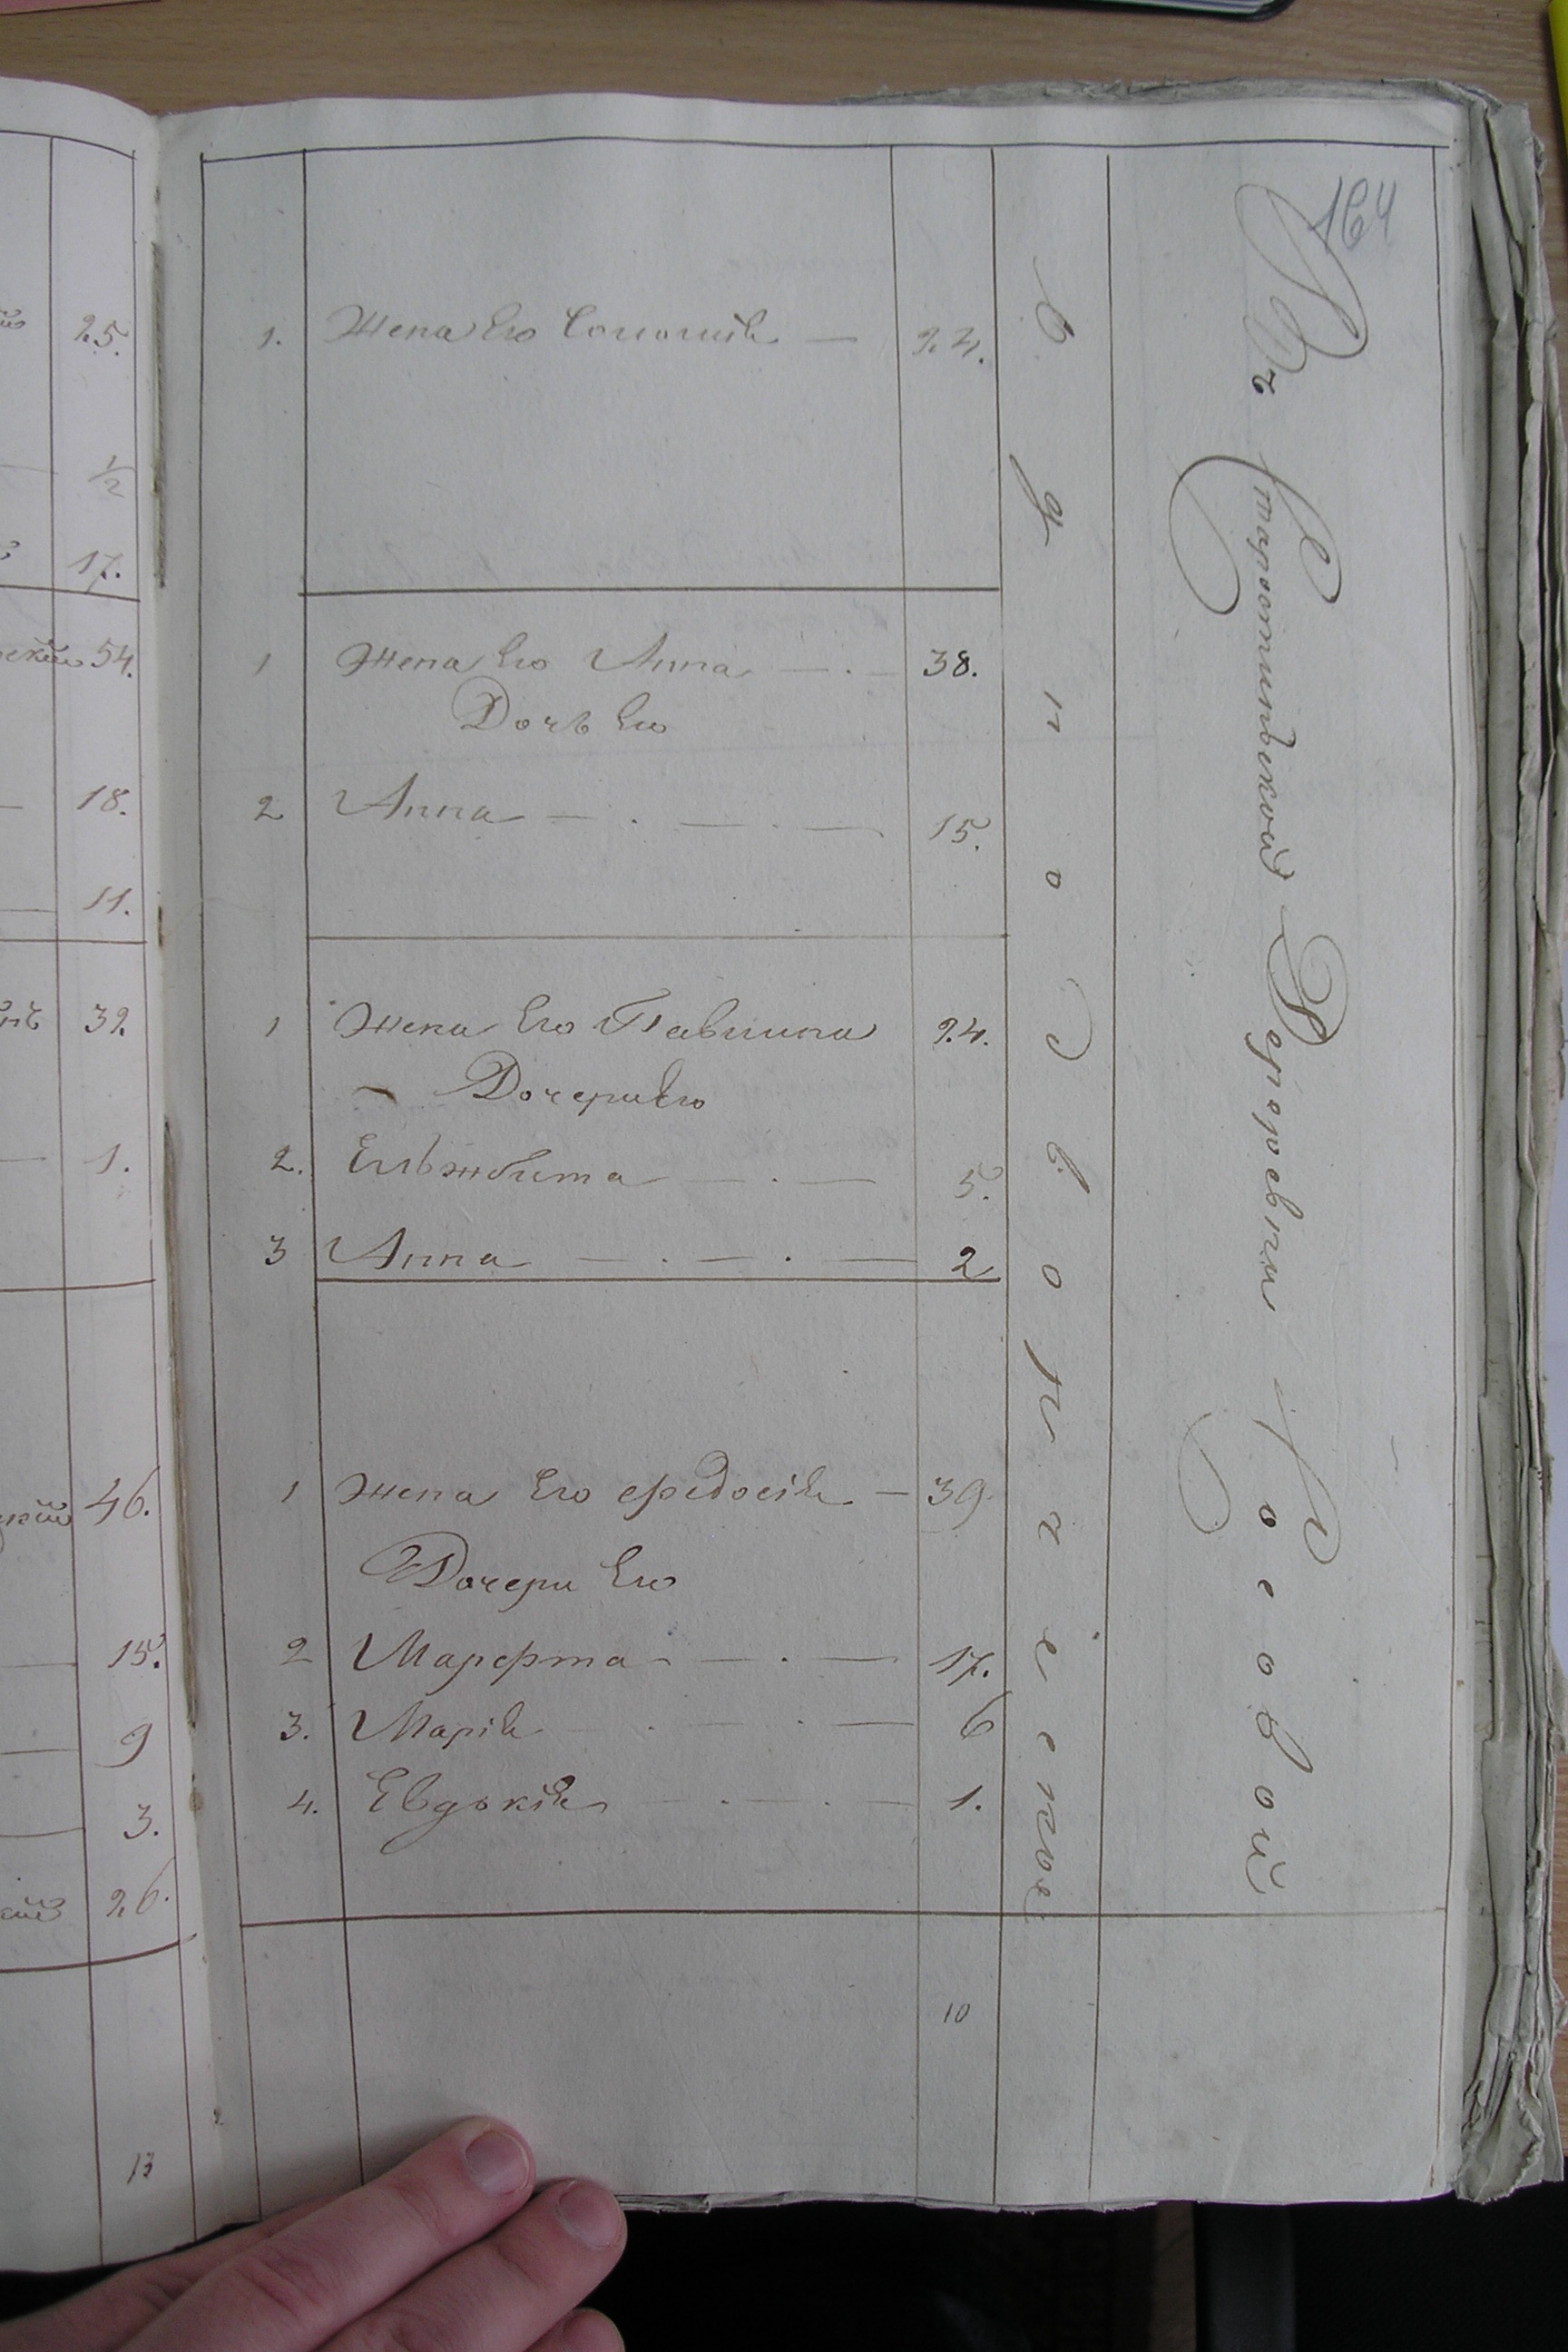 164
25.
1/2
17.
54.
18.
11.
32.
1.
46.
15.
9
3.
26.
13
1. Жена Его Соломия — 24.
1 Жена Его Анна — . — 38.
Дочь Его
2 Анна — . — . — 15.
1 Жена Его Павлина 24.
Дочери Его
2. Ельжбита — . — 5.
3 Анна — . — . — 2
1 Жена Его Федосія — 39
Дочери Его
2 Марфта — . — 17.
3. Марія — . — . — 6
4. Евдокія — . — . — 1.
10
Однодворческое
Въ Старостинъской Деревни